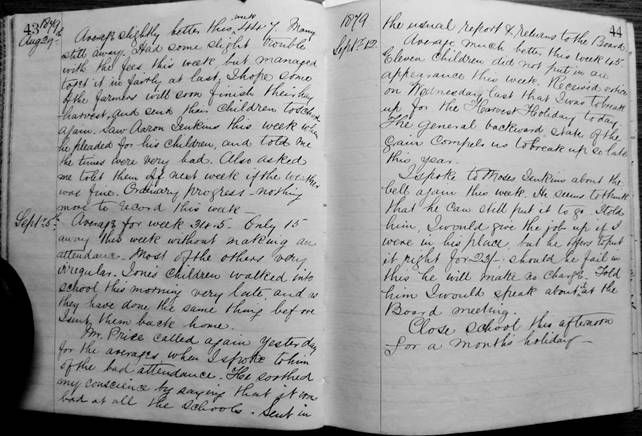 43
1879
Aug 29th
Average slightly better this week 44.7 Many
still away. Had some slight trouble
with the fees this week, but managed
to get it in fairly at last, I hope some
of the farmers will soon finish their hay
harvest, and send their children to school
again. Saw Aaron Jenkins this week when
he pleaded for his children, and told me
the times were very bad. Also asked
me to let them next week if the weather
was fine. Ordinary progress – nothing
more to record this week –
Sept. 5th
Average for week 34.5. Only 15
away this week without making an
attendance. Most of the others very
irregular. Jones' Children walked into
school this morning very late, and as
they have done the same thing before
I sent them back home.
Mr. Price called again yesterday
for the averages, when I spoke to him
of the bad attendance. He soothed
my conscience by saying that it was
bad at all the schools. Sent in
44
1879
the usual report & returns to the Board
Sept. 12
Average much better this week 45
Eleven Children did not put in an
appearance this week. Received orders
on Wednesday last that I was to break
up for the Harvest Holiday today
The general backward state of the
Grain compels us to break up so late
this year.
I spoke to Moses Jenkins about the
bell again this week. He seems to think
that he can still put it to go. I told
him, I would give the job up if I
were in his place, but he offers to put
it right for 22/- should he fail in
this he will make no charge. Told
him I would speak about it at the
Board meeting.
Close school this afternoon
for a months holiday –